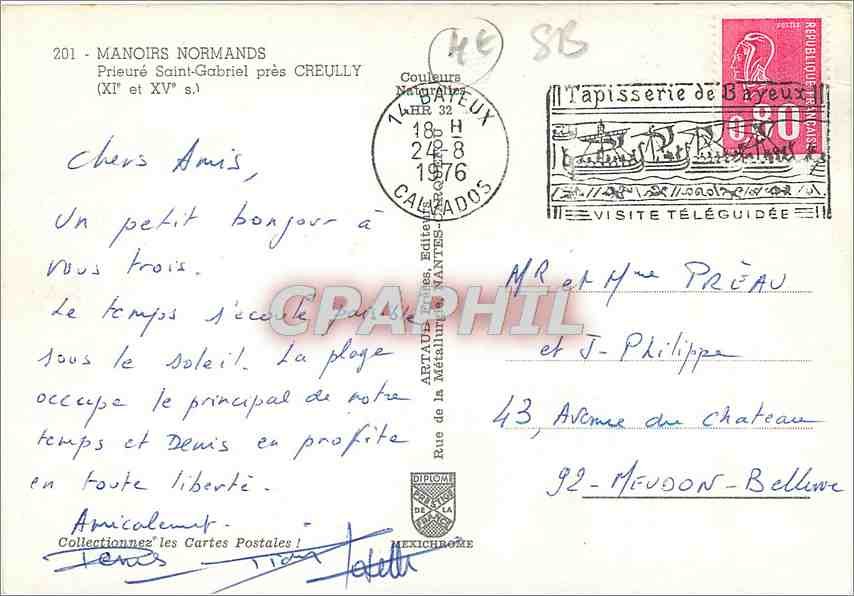 201 - MANOIRS NORMANDS
Prieuré Saint-Gabriel près CREULLY
(XIe et XVe s.)
4E
SB
Couleurs
Naturelles
HR 32
14 BAYEUX
18 H
24-8
1976
CALVADOS
Tapisserie de Bayeux
VISITE TÉLÉGUIDÉE
POSTES
0,80
REPUBLIQUE FRANÇAISE
Chers Amis,
Un petit bonjour à
vous trois.
Le temps s'écoule paisible
sous le soleil. La plage
occupe le principal de notre
temps et Denis en profite
en toute liberté.
Amicalement.
Denis
Collectionnez les Cartes Postales !
ARTAUD Frères, Editeurs
Rue de la Métallurgie, NANTES-CARQUEFOU
CPARPHIL
DIPLOME
PRESTIGE
DE LA
FRANCE
MEXICHROME
MR et Mme PRÉAU
et J-Philippe
43, Avenue du Chateau
92-MEUDON-Bellevue